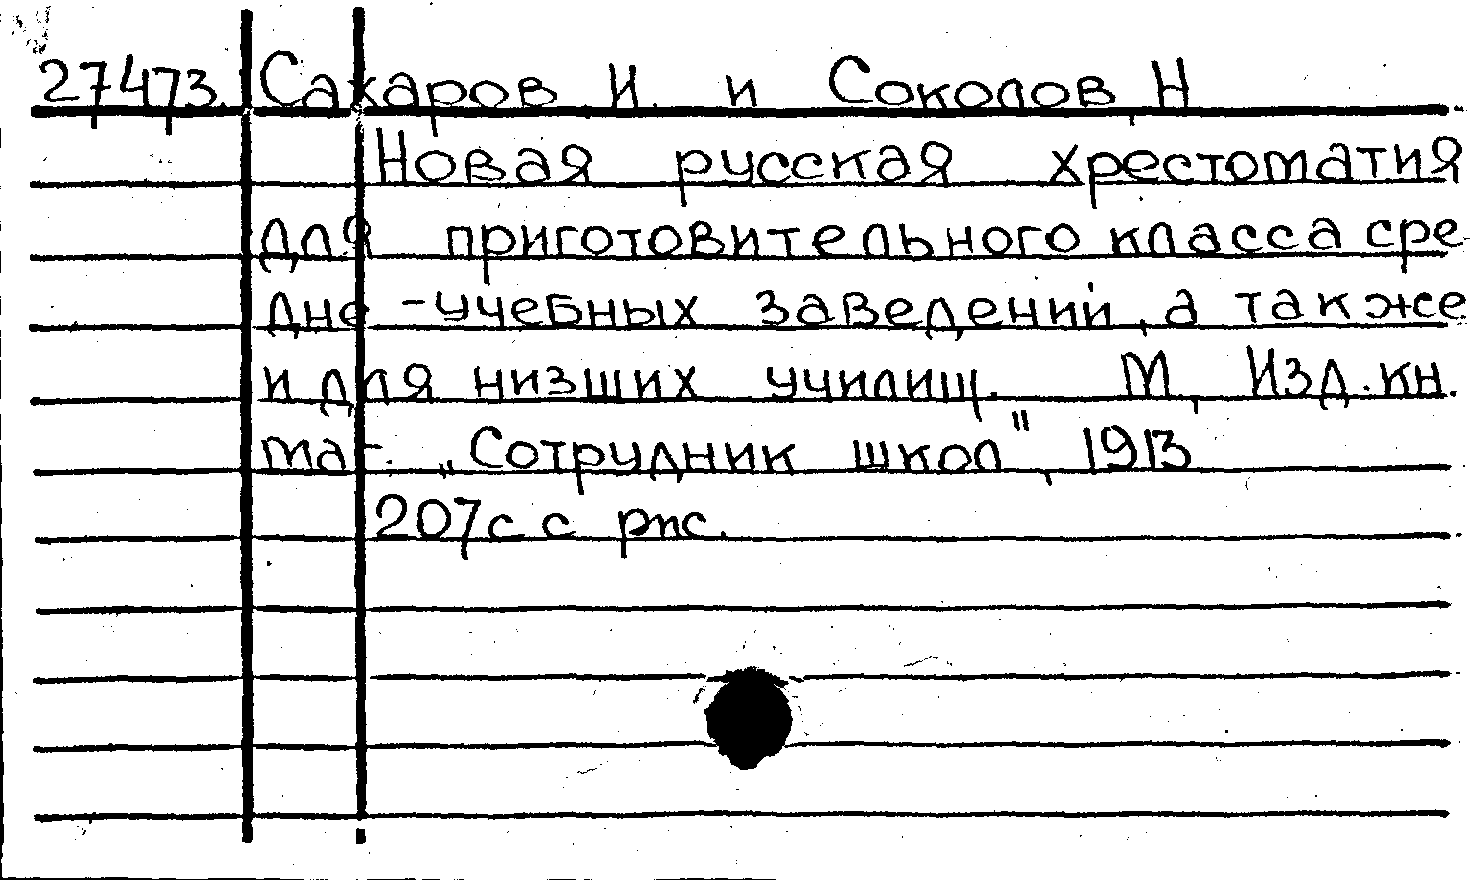 27473. Сахаров И. и Соколов Н
Новая русская хрестоматия
для приготовительного класса сре
дне-учебных заведений, а также
и для низших училищ. М, Изд. кн.
маг. „Сотрудник школ", 1913
207с с рис.